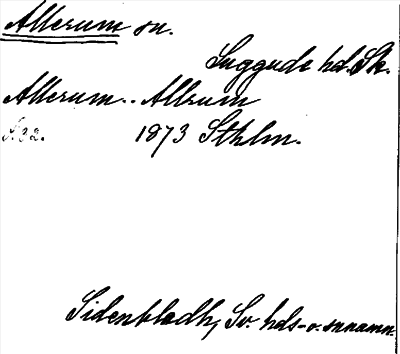 Allerum sn.
Luggude hd. Sk.
Allerum.. Allrum
S. 32. 1873 Sthlm.
Sidenbladh, Sv. hds- o. snnamn.